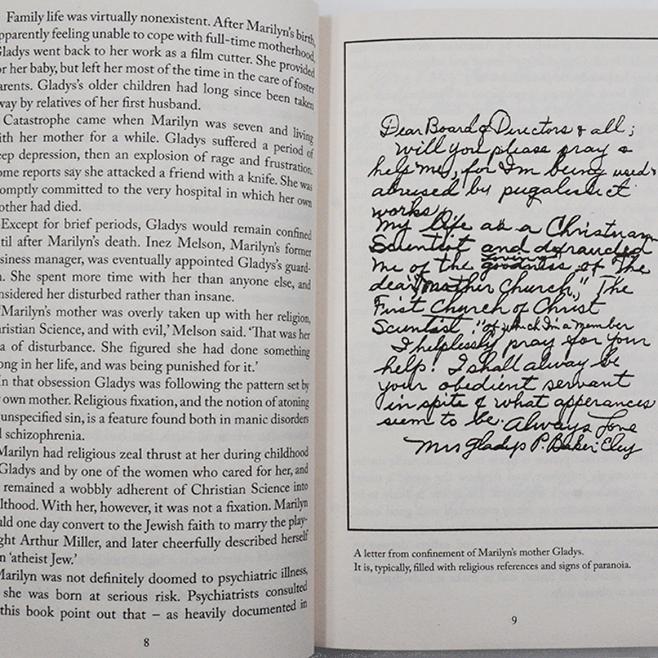 Family life was virtually nonexistent. After Marilyn's birth,
pparently feeling unable to cope with full-time motherhood,
Gladys went back to her work as a film cutter. She provided
or her baby, but left her most of the time in the care of foster
arents. Gladys's older children had long since been taken
way by relatives of her first husband.
Catastrophe came when Marilyn was seven and living
ith her mother for a while. Gladys suffered a period of
eep depression, then an explosion of rage and frustration.
ome reports say she attacked a friend with a knife. She was
omptly committed to the very hospital in which her own
other had died.
Except for brief periods, Gladys would remain confined
til after Marilyn's death. Inez Melson, Marilyn's former
siness manager, was eventually appointed Gladys's guard-
n. She spent more time with her than anyone else, and
nsidered her disturbed rather than insane.
'Marilyn's mother was overly taken up with her religion,
hristian Science, and with evil,' Melson said. 'That was her
a of disturbance. She figured she had done something
ong in her life, and was being punished for it.'
In that obsession Gladys was following the pattern set by
own mother. Religious fixation, and the notion of atoning
unspecified sin, is a feature found both in manic disorders
d schizophrenia.
Marilyn had religious zeal thrust at her during childhood
Gladys and by one of the women who cared for her, and
remained a wobbly adherent of Christian Science into
lthood. With her, however, it was not a fixation. Marilyn
uld one day convert to the Jewish faith to marry the play-
ght Arthur Miller, and later cheerfully described herself
n 'atheist Jew.'
Marilyn was not definitely doomed to psychiatric illness,
she was born at serious risk. Psychiatrists consulted
this book point out that – as heavily documented in
8
Dear Board of Directors & all;
Will you please pray &
help me, for I'm being used &
abused by pugalistict
works,
My life as a Christian
Scientist and defrauded
me of the goodness of The
dear "Mother Church," The
First Church of Christ
Scientist, "of which I'm a member
I helplessly pray for your
help! I shall alway be
your obedient servant
in spite of what apperances
seem to be. Always Love
Mrs Gladys P. Baker-Eley
A letter from confinement of Marilyn's mother Gladys.
It is, typically, filled with religious references and signs of paranoia.
9